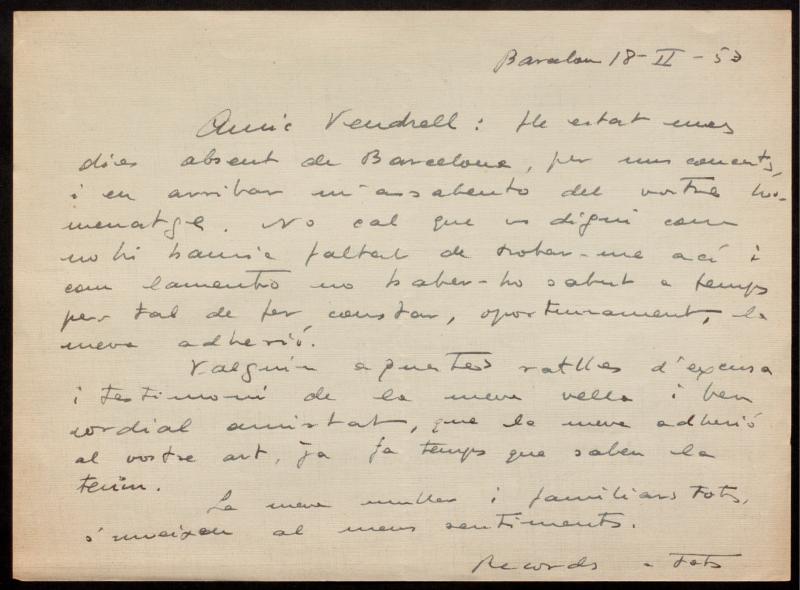 Barcelona 18-II-53
Amic Vendrell: He estat unes
dies absent de Barcelona, per uns concerts,
i en arribar m'assabento del vostre ho-
menatge. No cal que us digui com
no hi hauria faltat de trobar-me ací i
com lamento no haber-ho sabut a temps
per tal de fer constar, oportunament, la
meva adhesió.
Valguin aquestes ratlles d'excusa
i testimoni de la meva vella i ben
cordial amistat, que la meva adhesió
al vostre art, ja fa temps que saben la
tenim.
La meva muller i familiars tots,
s'uneixen al meus sentiments.
Records a tots